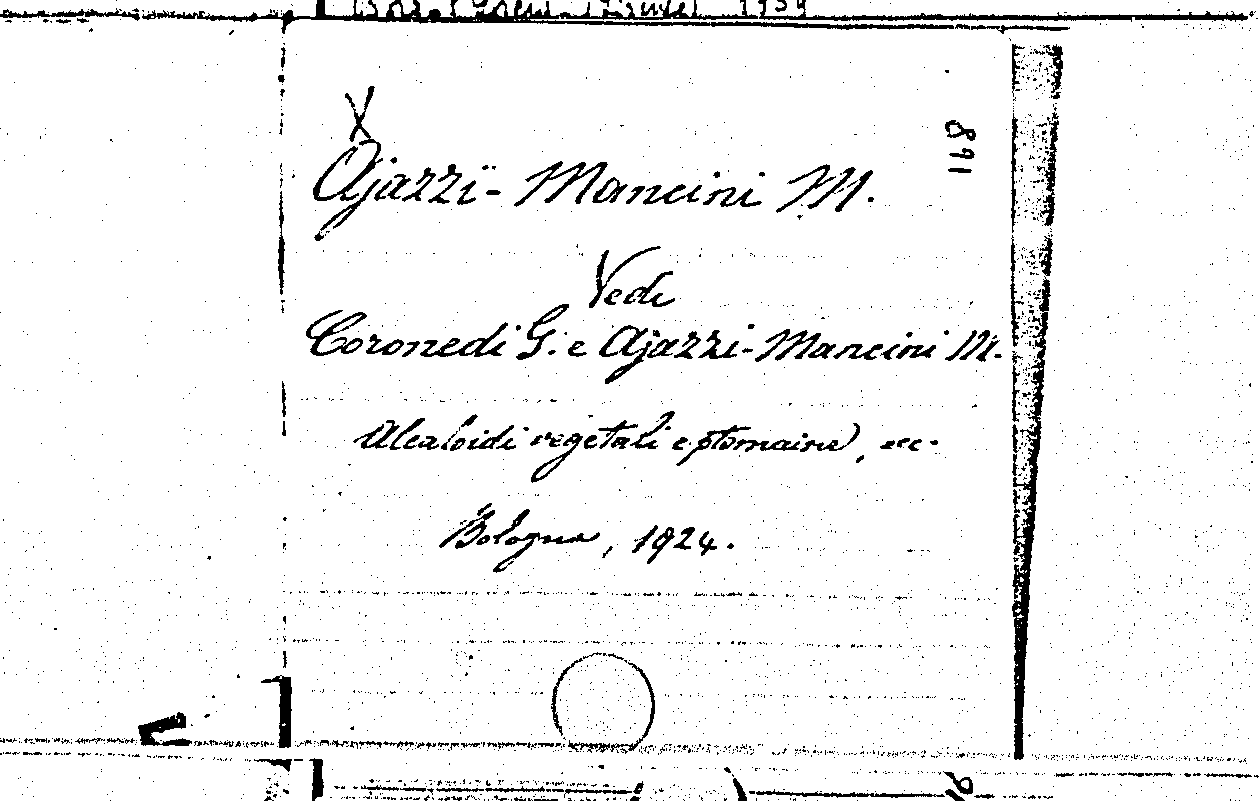 X
891
Ajazzi-Mancini M.
Vedi
Coronedi G. e Ajazzi-Mancini M.
Alcaloidi vegetali e ptomaine, ecc.
Bologna, 1924.